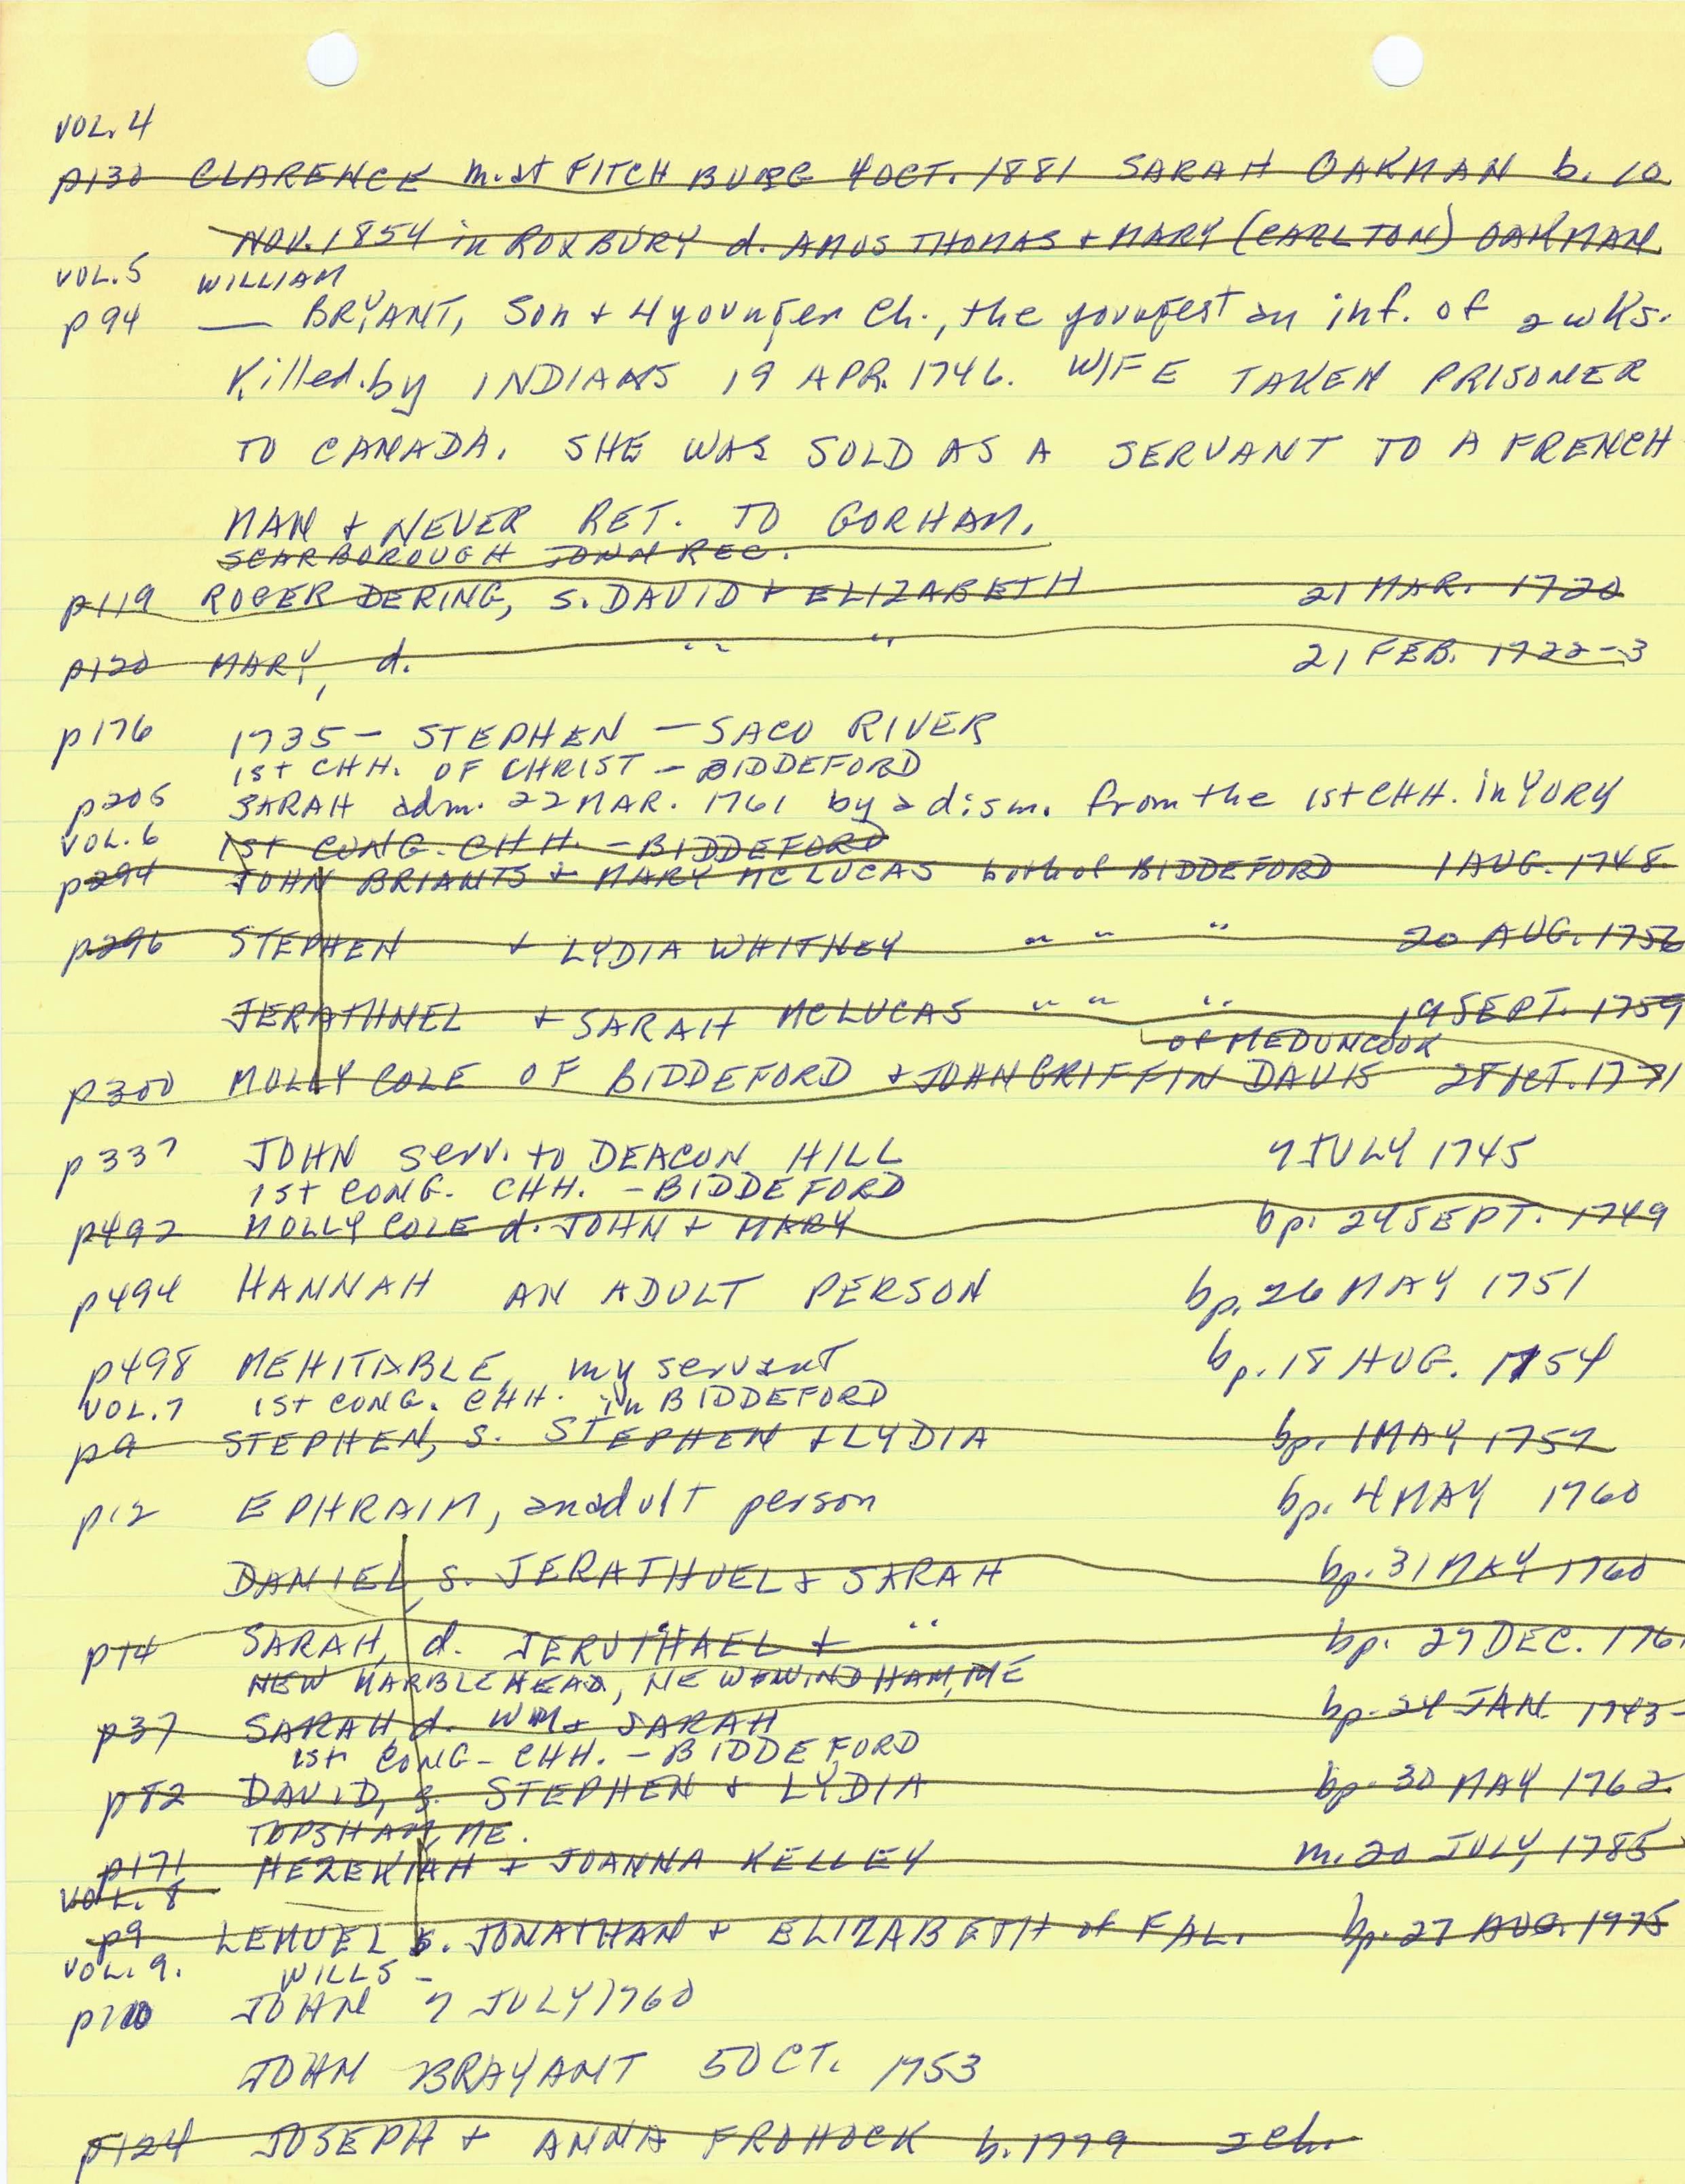 VOL. 4
p130 CLARENCE m. at FITCHBURG 4 OCT. 1881 SARAH OAKMAN b. 10
NOV. 1854 in ROXBURY d. AMOS THOMAS + MARY (CARLTON) OAKMAN
VOL. 5 WILLIAM
p94 — BRYANT, Son + 4 younger Ch., the youngest an inf. of 2 wks.
Killed by INDIANS 19 APR. 1746. WIFE TAKEN PRISONER
TO CANADA. SHE WAS SOLD AS A SERVANT TO A FRENCH
MAN + NEVER RET. TO GORHAM.
SCARBOROUGH TOWN REC.
p119 ROGER DERING, S. DAVID + ELIZABETH 21 MAR. 1720
p120 MARY, d. " " 21 FEB. 1722-3
p176 1735 - STEPHEN - SACO RIVER
1st CHH. OF CHRIST - BIDDEFORD
p205 SARAH adm. 22 MAR. 1761 by a dism. from the 1st CHH. in YORY
VOL. 6 1ST CONG. CHH. - BIDDEFORD
p294 JOHN BRIANTS + MARY MCLUCAS both of BIDDEFORD 1 AUG. 1748.
p296 STEPHEN + LYDIA WHITNEY " " " 20 AUG. 1756
JERATHNEL + SARAH MCLUCAS " " " 19 SEPT. 1759
of MEDUNCOOK
p300 MOLLY COLE OF BIDDEFORD + JOHN GRIFFIN DAVIS 28 OCT. 1771
p337 JOHN serv. to DEACON HILL 7 JULY 1745
1st CONG. CHH. - BIDDEFORD
p492 MOLLY COLE d. JOHN + MARY bp. 24 SEPT. 1749
p494 HANNAH AN ADULT PERSON bp. 26 MAY 1751
p498 MEHITABLE, my servant bp. 18 AUG. 1754
VOL. 7 1st CONG. CHH. in BIDDEFORD
p9 STEPHEN, S. STEPHEN + LYDIA bp. 1 MAY 1757
p12 EPHRAIM, an adult person bp. 4 MAY 1760
DANIEL S. JERATHUEL + SARAH bp. 31 MAY 1760
p14 SARAH, d. JERUTHAEL + " bp. 27 DEC. 176
NEW MARBLEHEAD, ME WINDHAM, ME
p37 SARAH d. WM + SARAH bp. 24 JAN. 1743-
1st CONG- CHH. - BIDDEFORD
p82 DAVID, S. STEPHEN + LYDIA bp. 30 MAY 1762
TOPSHAM, ME.
p171 HEZEKIAH + JOANNA KELLEY m. 20 JULY 1785
VOL. 8
p9 LEMUEL S. JONATHAN + ELIZABETH of FAL. bp. 27 AUG. 1775
VOL. 9. WILLS -
JOHN 7 JULY 1760
JOHN BRAYANT 5 OCT. 1753
p124 JOSEPH + ANNA FROHOCK b. 1779 2 ch.